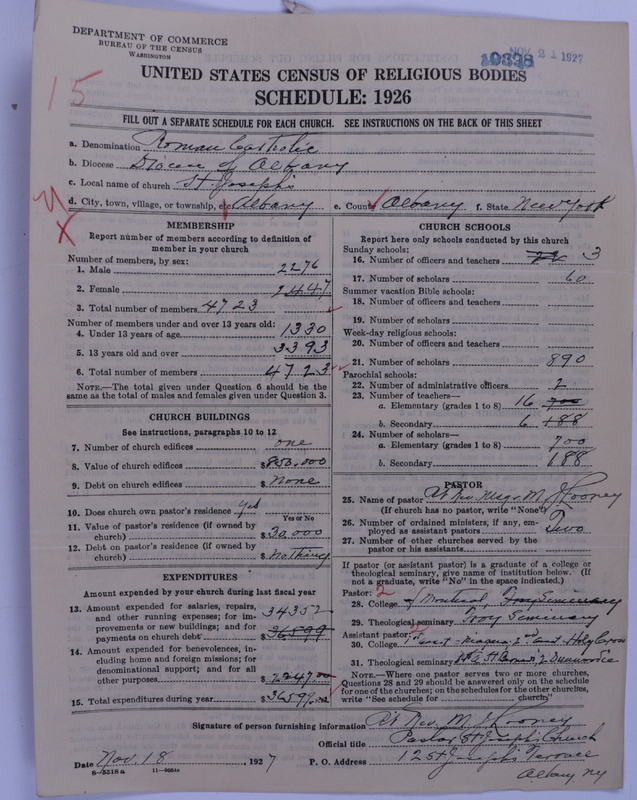 DEPARTMENT OF COMMERCE
BUREAU OF THE CENSUS
WASHINGTON
NOV 21 1927
15
UNITED STATES CENSUS OF RELIGIOUS BODIES
SCHEDULE: 1926
FILL OUT A SEPARATE SCHEDULE FOR EACH CHURCH. SEE INSTRUCTIONS ON THE BACK OF THIS SHEET
a. Denomination Roman Catholic
b. Diocese Diocese of Albany
c. Local name of church St. Joseph's
d. City, town, village, or township, etc. Albany e. County Albany f. State New York
MEMBERSHIP
Report number of members according to definition of
member in your church
Number of members, by sex:
1. Male 2276
2. Female 2447
3. Total number of members 4723
Number of members under and over 13 years old:
4. Under 13 years of age 1330
5. 13 years old and over 3393
6. Total number of members 4723
NOTE.—The total given under Question 6 should be
same as the total of males and females given under Question 3.
CHURCH BUILDINGS
See instructions, paragraphs 10 to 12
7. Number of church edifices one
8. Value of church edifices $850,000
9. Debt on church edifices $ None
10. Does church own pastor's residence? yes
Yes or No
11. Value of pastor's residence (if owned by
church) $30,000
12. Debt on pastor's residence (if owned by
church) $ Nothing
EXPENDITURES
Amount expended by your church during last fiscal year
13. Amount expended for salaries, repairs,
and other running expenses; for im-
provements or new buildings; and for
payments on church debt 34352
$ 36599
14. Amount expended for benevolences, in-
cluding home and foreign missions; for
denominational support; and for all
other purposes $2247.00
15. Total expenditures during year $36599.00
CHURCH SCHOOLS
Report here only schools conducted by this church
Sunday schools:
16. Number of officers and teachers 3
17. Number of scholars 60
Summer vacation Bible schools:
18. Number of officers and teachers
19. Number of scholars
Week-day religious schools:
20. Number of officers and teachers
21. Number of scholars 890
Parochial schools:
22. Number of administrative officers 2
23. Number of teachers—
a. Elementary (grades 1 to 8) 16 700
b. Secondary 6 188
24. Number of scholars—
a. Elementary (grades 1 to 8) 700
b. Secondary 188
PASTOR
25. Name of pastor Rt Rev Msgr. M. J.
(If church has no pastor, write "None")
26. Number of ordained ministers, if any, em-
ployed as assistant pastors Two
27. Number of other churches served by the
pastor or his assistants
If pastor (or assistant pastor) is a graduate of a college or
theological seminary, give name of institution below. (If
not a graduate, write "No" in the space indicated.)
Pastor: 2
28. College of Montreal, Troy Seminary
29. Theological seminary Troy Seminary
Assistant pastor: 2
30. College Niagara 2nd and Holy Cross
31. Theological seminary 2 Dunwoodie
NOTE.—Where one pastor serves two or more churches,
Questions 28 and 29 should be answered only on the schedule
for one of the churches; on the schedules for the other churches,
write "See schedule for church."
Signature of person furnishing information Rt Rev. M. J.
Official title Pastor St Joseph's Church
Date Nov. 18 1927 P. O. Address 12 St Joseph's Terrace
8—5518 a
Albany NY